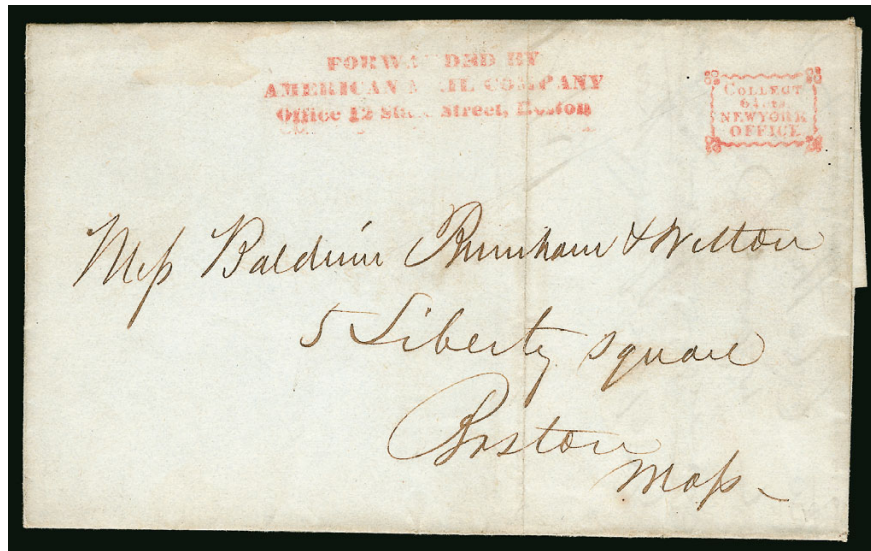 FORWARDED BY
AMERICAN MAIL COMPANY
Office 12 State Street, Boston
COLLECT
6¼ cts
NEW YORK
OFFICE
Mess Baldwin Burnham & Wetton
5 Liberty Square
Boston
Mass